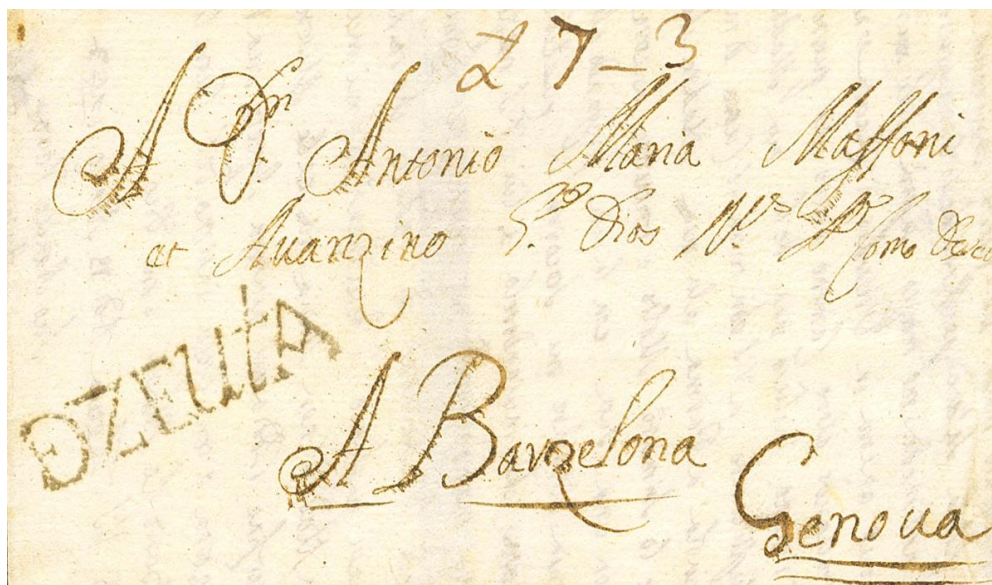 L 7-3
A Dn Antonio Maria Massoni
et Auanzino Gde Dios Ns Ss Como Deseo
DE ZEUTA
A Barzelona
Genoua